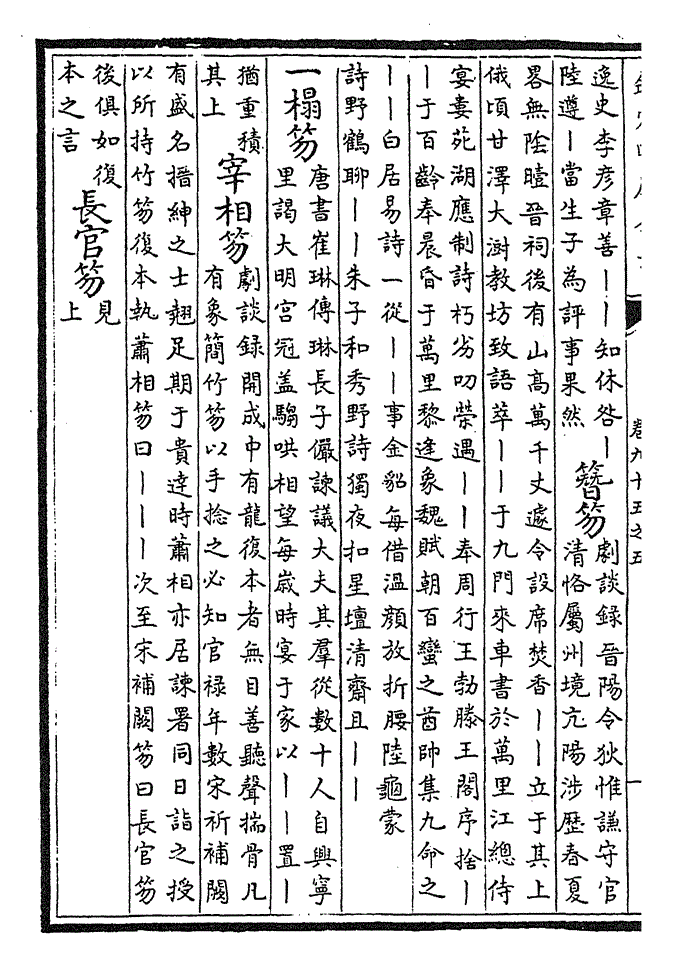 卷九十五之五
逸史李彥章善｜｜知休咎｜
陸遵｜當生子為評事果然
簪笏
劇談錄晉陽令狄惟謙守官
清恪屬州境亢陽涉歷春夏
畧無陰曀晉祠後有山高萬千丈遽令設席焚香｜｜立于其上
俄頃甘澤大澍教坊致語萃｜｜于九門來車書於萬里江總侍
宴婁苑湖應制詩朽劣叨榮遇｜｜奉周行王勃滕王閣序捨｜
｜于百齡奉晨昏于萬里黎逢象魏賦朝百蠻之酋帥集九命之
｜｜白居易詩一從｜｜事金貂每借溫顏放折腰陸龜蒙
詩野鶴聊｜｜朱子和秀野詩獨夜扣星壇清齋且｜｜
一榻笏
唐書崔琳傳琳長子儼諫議大夫其羣從數十人自興寧
里謁大明宮冠盖騶哄相望每歲時宴于家以｜｜置｜
猶重積
其上
宰相笏
劇談錄開成中有龍復本者無目善聽聲揣骨凡
有象簡竹笏以手捻之必知官禄年數宋祈補闕
有盛名搢紳之士翹足期于貴達時蕭相亦居諫署同日詣之授
以所持竹笏復本執蕭相笏曰｜｜｜次至宋補闕笏曰長官笏
後俱如復
本之言
長官笏
見
上